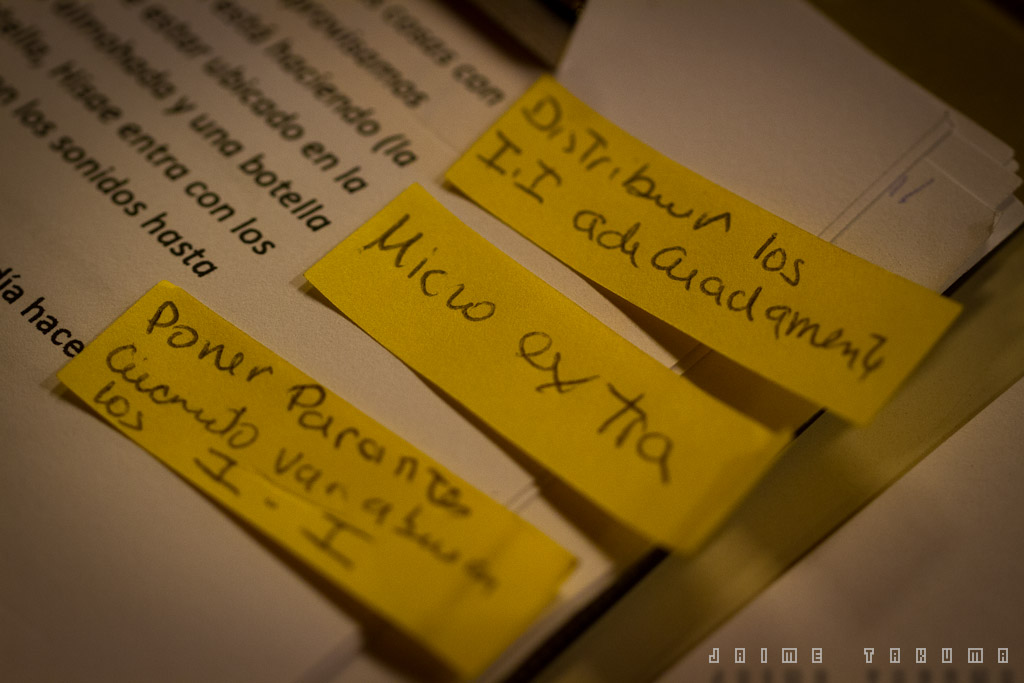 s cosas con
proguisamos
está haciendo (la
estar ubicado en la
almohada y una botella
ella, Hisae entra con los
n los sonidos hasta
día hace
Distribuir los
I.I adecuadamente
Micro extra
Poner Parantes
los
I. I
JAIME TAKUMA